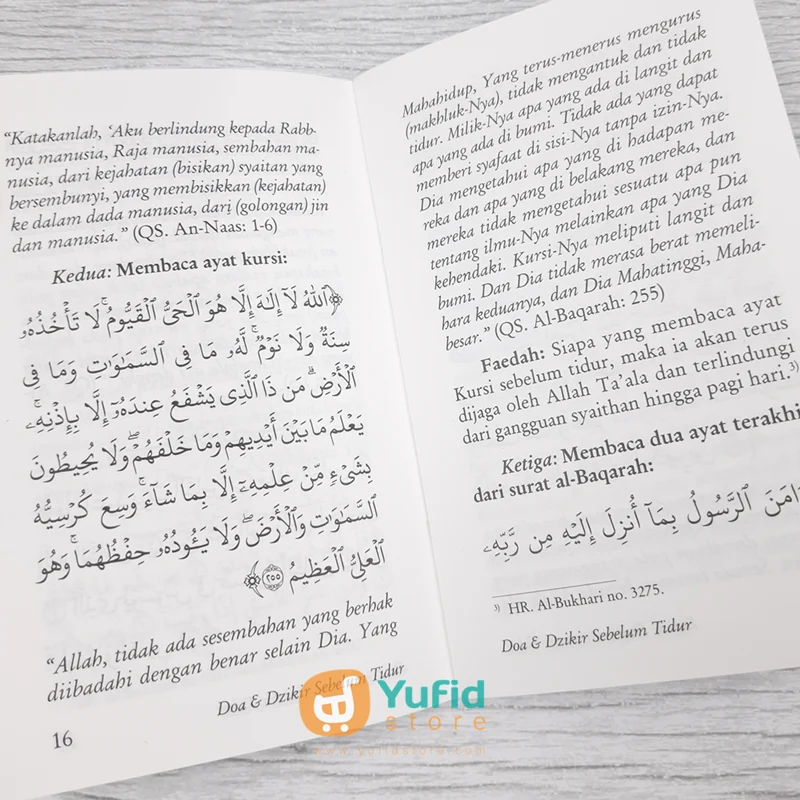 "Katakanlah, 'Aku berlindung kepada Rabb-
nya manusia, Raja manusia, sembahan ma-
nusia, dari kejahatan (bisikan) syaitan yang
bersembunyi, yang membisikkan (kejahatan)
ke dalam dada manusia, dari (golongan) jin
dan manusia." (QS. An-Naas: 1-6)
Kedua: Membaca ayat kursi:
﴿ٱللَّهُ لَآ إِلَٰهَ إِلَّا هُوَ ٱلْحَىُّ ٱلْقَيُّومُ ۚ لَا تَأْخُذُهُۥ
سِنَةٌ وَلَا نَوْمٌ ۚ لَّهُۥ مَا فِى ٱلسَّمَٰوَٰتِ وَمَا فِى
ٱلْأَرْضِ ۗ مَن ذَا ٱلَّذِى يَشْفَعُ عِندَهُۥٓ إِلَّا بِإِذْنِهِۦ ۚ
يَعْلَمُ مَا بَيْنَ أَيْدِيهِمْ وَمَا خَلْفَهُمْ ۖ وَلَا يُحِيطُونَ
بِشَىْءٍ مِّنْ عِلْمِهِۦٓ إِلَّا بِمَا شَآءَ ۚ وَسِعَ كُرْسِيُّهُ
ٱلسَّمَٰوَٰتِ وَٱلْأَرْضَ ۖ وَلَا يَـُٔودُهُۥ حِفْظُهُمَا ۚ وَهُوَ
ٱلْعَلِىُّ ٱلْعَظِيمُ ۝٢٥٥﴾
"Allah, tidak ada sesembahan yang berhak
diibadahi dengan benar selain Dia. Yang
Doa & Dzikir Sebelum Tidur
16
Mahahidup, Yang terus-menerus mengurus
(makhluk-Nya), tidak mengantuk dan tidak
tidur. Milik-Nya apa yang ada di langit dan
apa yang ada di bumi. Tidak ada yang dapat
memberi syafaat di sisi-Nya tanpa izin-Nya.
Dia mengetahui apa yang di hadapan me-
reka dan apa yang di belakang mereka, dan
mereka tidak mengetahui sesuatu apa pun
tentang ilmu-Nya melainkan apa yang Dia
kehendaki. Kursi-Nya meliputi langit dan
bumi. Dan Dia tidak merasa berat memeli-
hara keduanya, dan Dia Mahatinggi, Maha-
besar." (QS. Al-Baqarah: 255)
Faedah: Siapa yang membaca ayat
Kursi sebelum tidur, maka ia akan terus
dijaga oleh Allah Ta'ala dan terlindungi
dari gangguan syaithan hingga pagi hari.³⁾
Ketiga: Membaca dua ayat terakhi
dari surat al-Baqarah:
ءَامَنَ ٱلرَّسُولُ بِمَآ أُنزِلَ إِلَيْهِ مِن رَّبِّهِۦ
³⁾ HR. Al-Bukhari no. 3275.
Doa & Dzikir Sebelum Tidur
Yufid
store
www.yufidstore.com